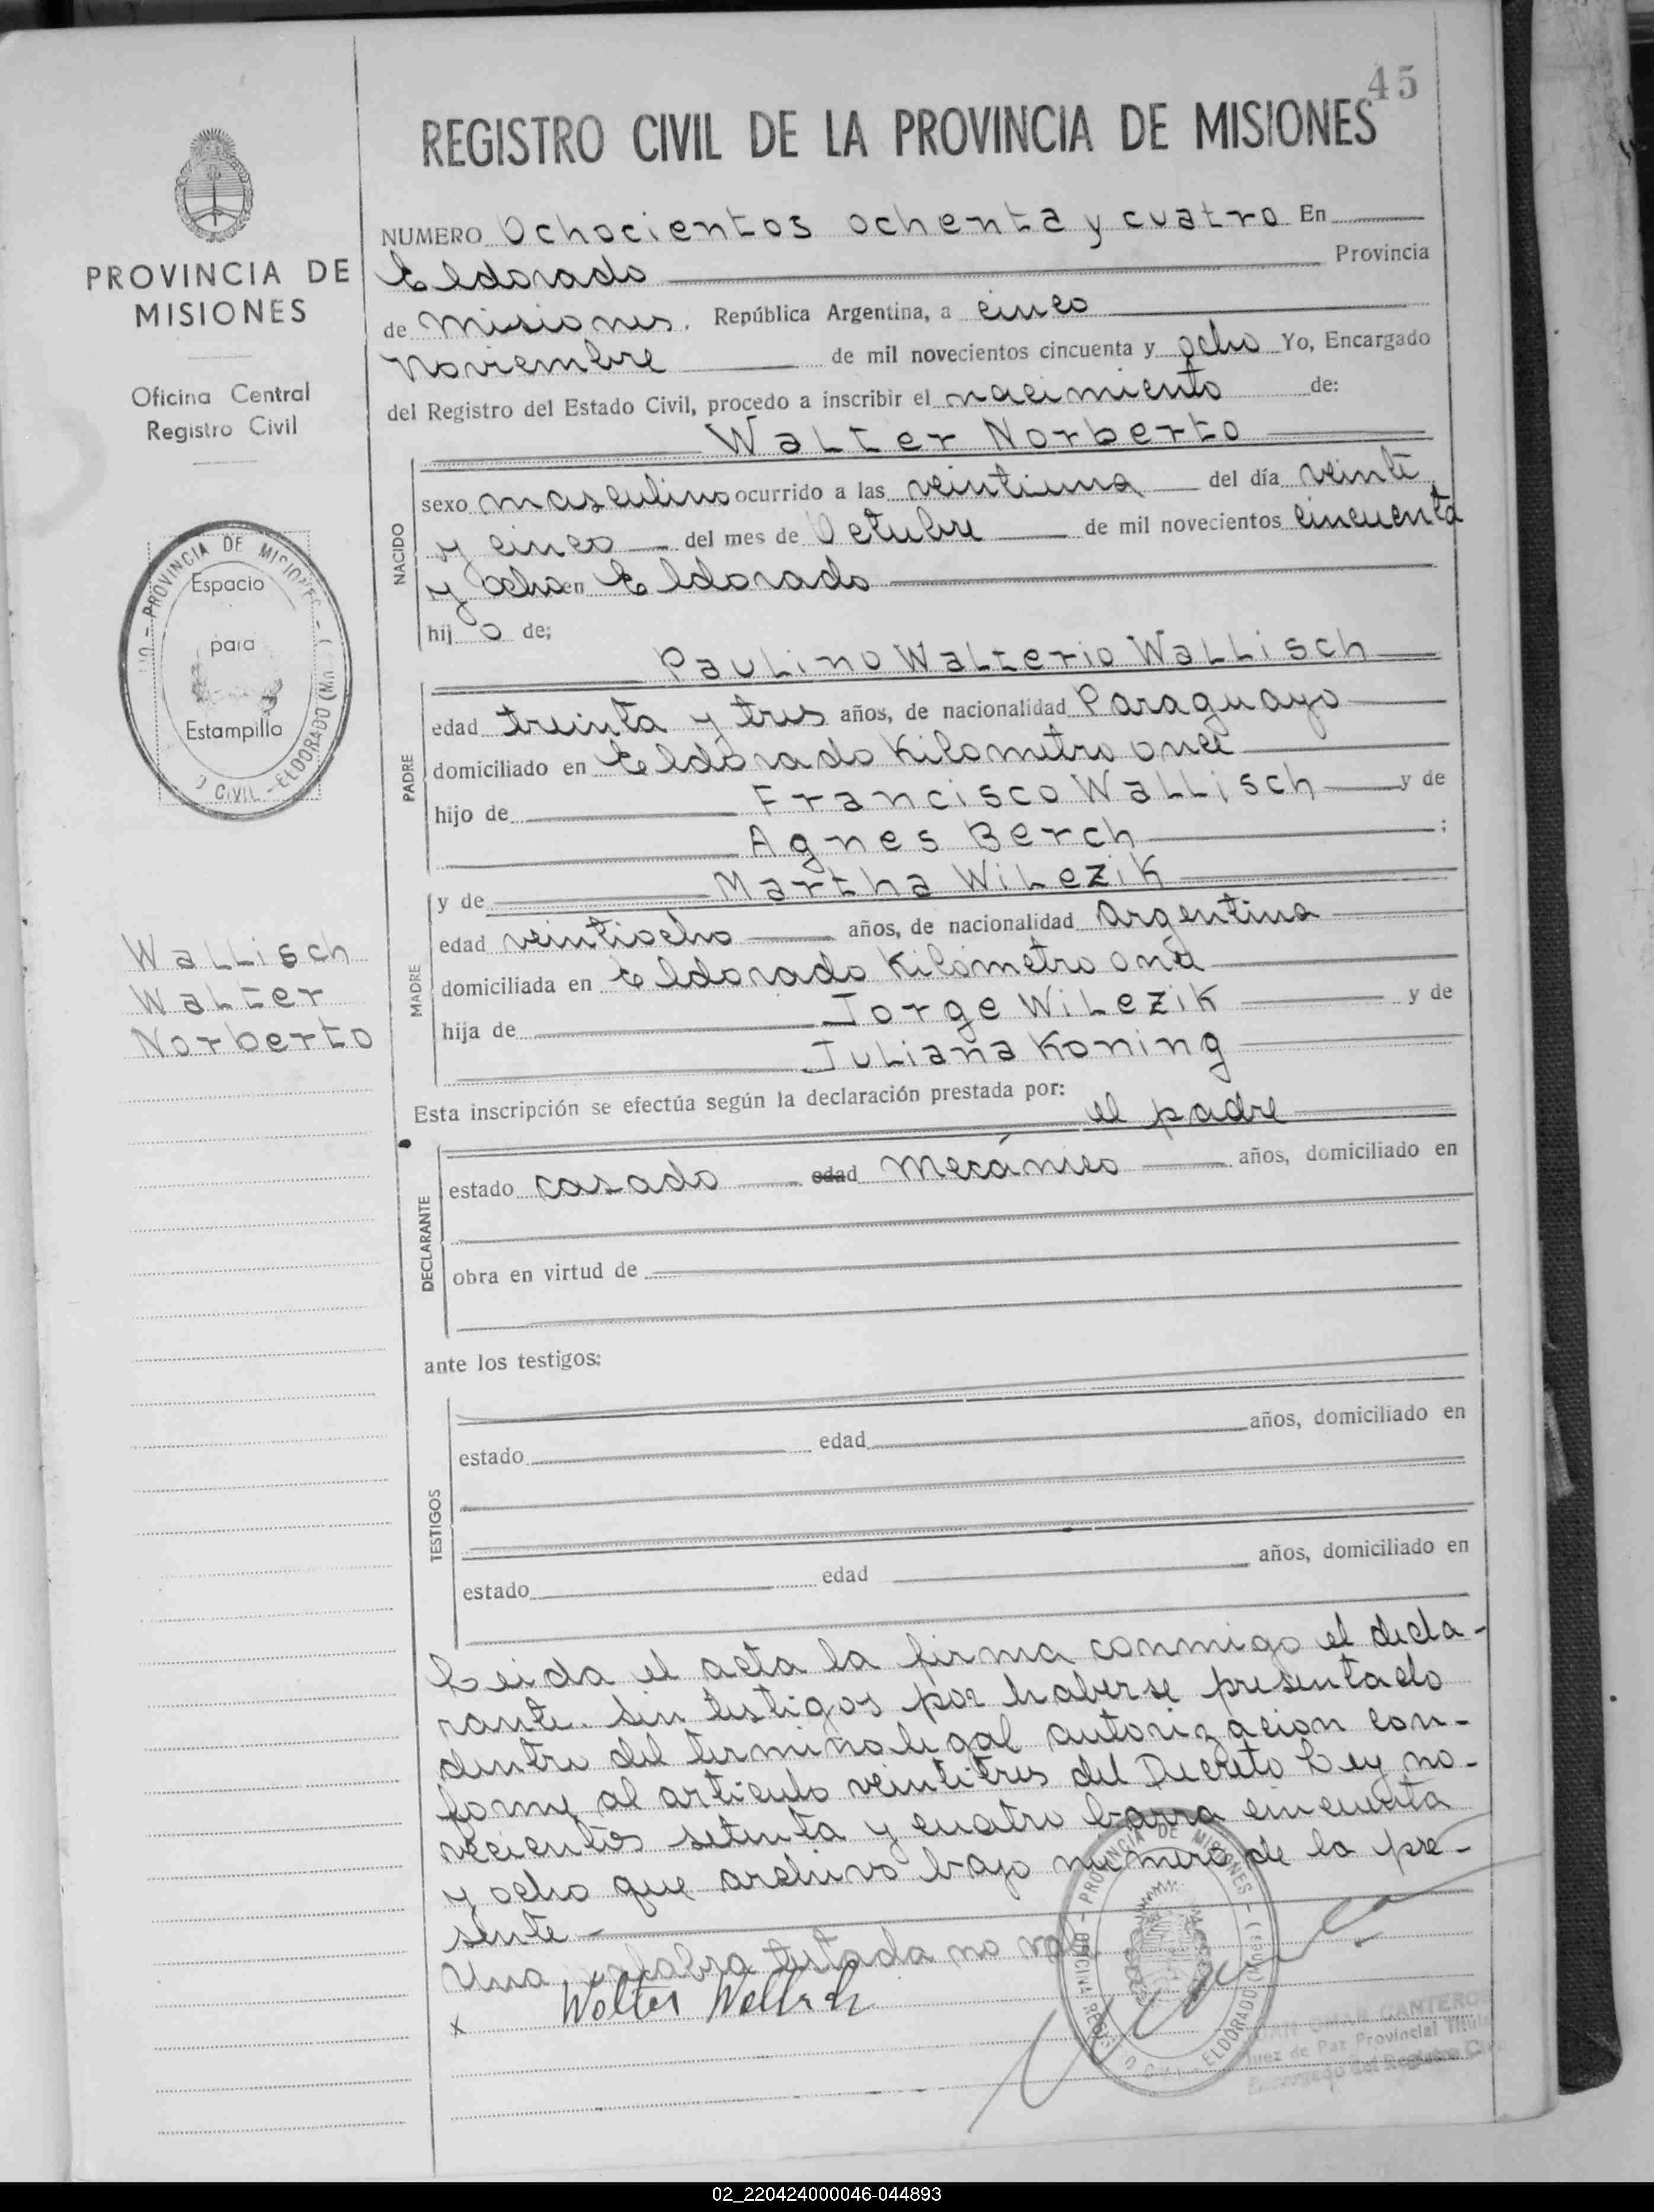 45
REGISTRO CIVIL DE LA PROVINCIA DE MISIONES
PROVINCIA DE
MISIONES
Oficina Central
Registro Civil
NUMERO Ochocientos ochenta y cuatro En
Eldorado Provincia
de Misiones. República Argentina, a cinco
Noviembre de mil novecientos cincuenta y ocho Yo, Encargado
del Registro del Estado Civil, procedo a inscribir el nacimiento de:
Walter Norberto
NACIDO
sexo masculino ocurrido a las veintiuna del día veinte
y cinco del mes de Octubre de mil novecientos cincuenta
y ocho en Eldorado
hij o de;
PROVINCIA DE MISIONES
Espacio
para
Estampilla
CIVIL - ELDORADO (Mnes)
Paulino Walterio Wallisch
PADRE
edad treinta y tres años, de nacionalidad Paraguayo
domiciliado en Eldorado Kilometro once
hijo de Francisco Wallisch y de
Agnes Berch ;
MADRE
y de Martha Wilezik
edad veintiocho años, de nacionalidad Argentina
domiciliada en Eldorado Kilometro once
hija de Jorge Wilezik y de
Juliana Koning
Wallisch
Walter
Norberto
Esta inscripción se efectúa según la declaración prestada por: el padre
DECLARANTE
estado casado edad Mecánico años, domiciliado en
obra en virtud de
ante los testigos:
TESTIGOS
estado edad años, domiciliado en
estado edad años, domiciliado en
Leida el acta la firma conmigo el decla-
rante. Sin testigos por haberse presentado
dentro del termino legal autorizacion con-
forme al articulo veintitres del Decreto Ley no-
vecientos setenta y cuatro barra cincuenta
y ocho que archivo bajo numero de la pre-
sente -
Una palabra testada no vale
x Walter Wallisch
PROVINCIA DE MISIONES
ELDORADO
JUAN OMAR CANTEROS
Juez de Paz Provincial Titular
Encargado del Registro Civil
02_220424000046-044893